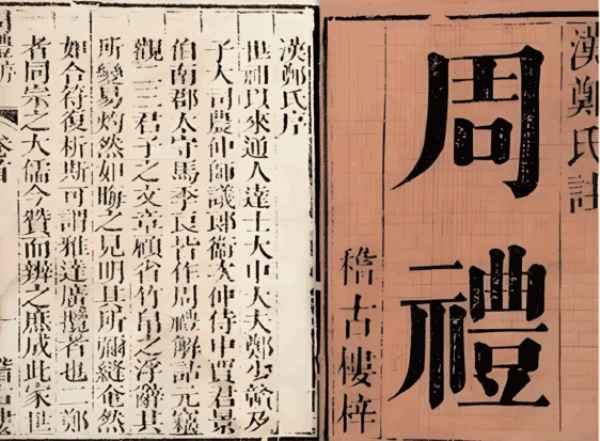 漢鄭氏註
周禮
稽古樓梓
漢鄭氏序
世祖以來通人達士大中大夫鄭少贛及
子大司農仲師議郎衞次仲侍中賈君景
伯南郡太守馬季長皆作周禮解詁元竊
觀二三君子之文章顧省竹帛之浮辭其
所變易灼然如晦之見明其所彌縫奄然
如合符復析斯可謂雅達廣攬者也二鄭
者同宗之大儒今贊而辨之庶成此家世
周禮序
卷首
稽古樓